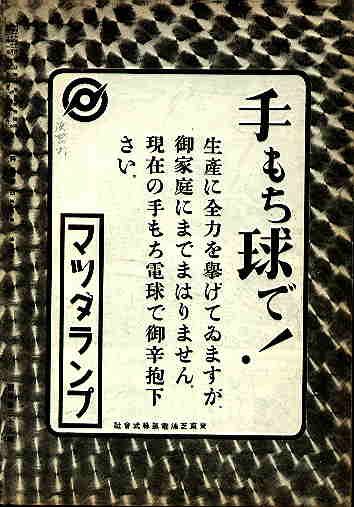 手もち球で!
生産に全力を擧げてゐますが、
御家庭にまでまはりません、
現在の手もち電球で御辛抱下
さい、
マツダランプ
東京芝浦電氣株式會社